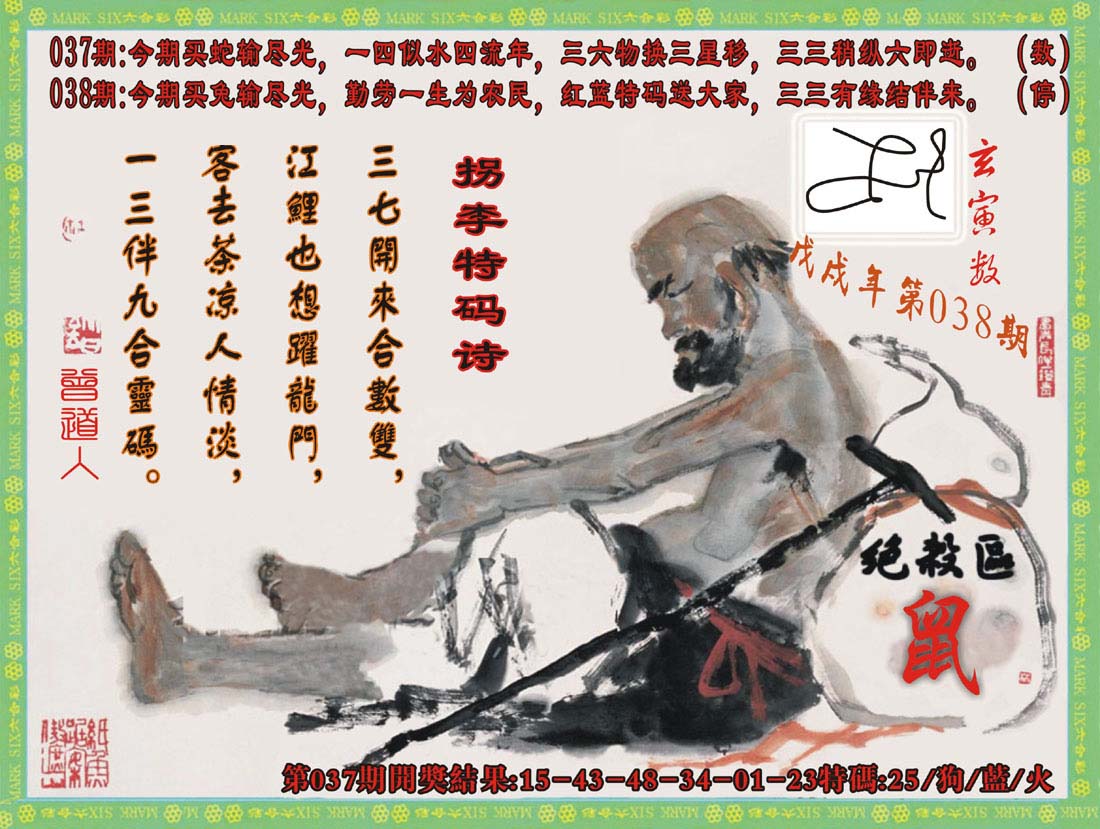 MARK SIX六合彩
037期:今期买蛇输尽光，一四似水四流年，三六物换三星移，三三稍纵六即逝。 （数）
038期:今期买兔输尽光，勤劳一生为农民，红蓝特码送大家，三三有缘结伴来。 （停）
玄寅数
戊戌年第038期
拐李特码诗
三七開來合數雙，
江鯉也想躍龍門，
客去茶凉人情淡，
一三伴九合靈碼。
曾道人
绝殺區
鼠
第037期開獎結果:15-43-48-34-01-23特碼:25/狗/藍/火